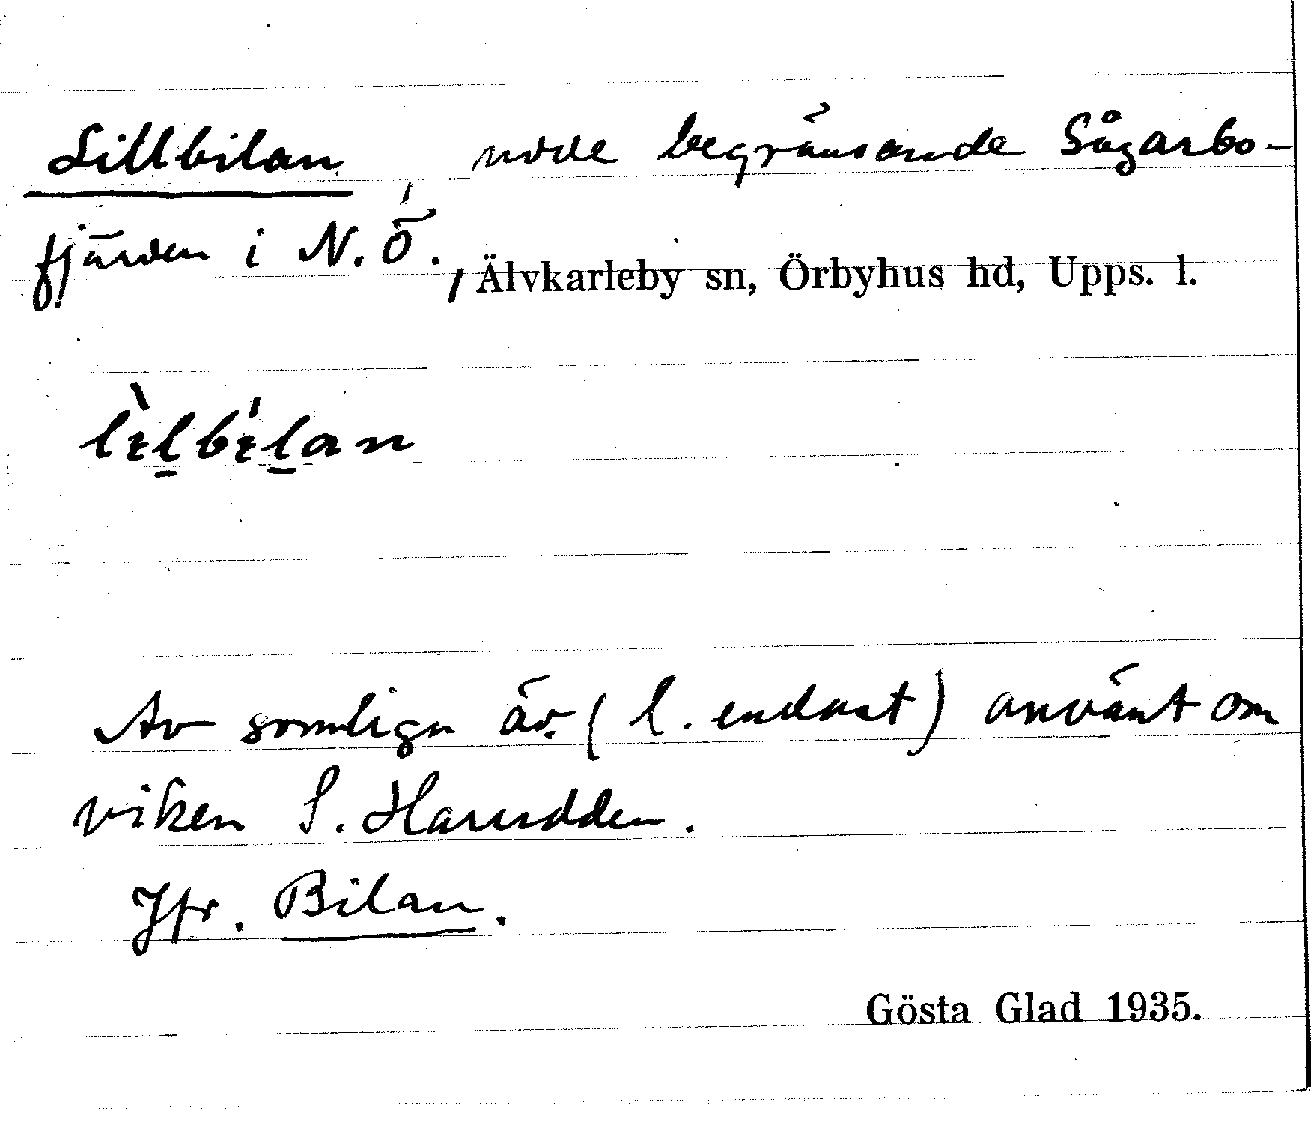 Lillbilan udde begränsande Sågarbo-
fjärden i N.Ö., Älvkarleby sn, Örbyhus hd, Upps. l.
lìlbílan
Av somliga äv. (l. endast) använt om
viken S. Harudden.
Jfr. Bilan.
Gösta Glad 1935.